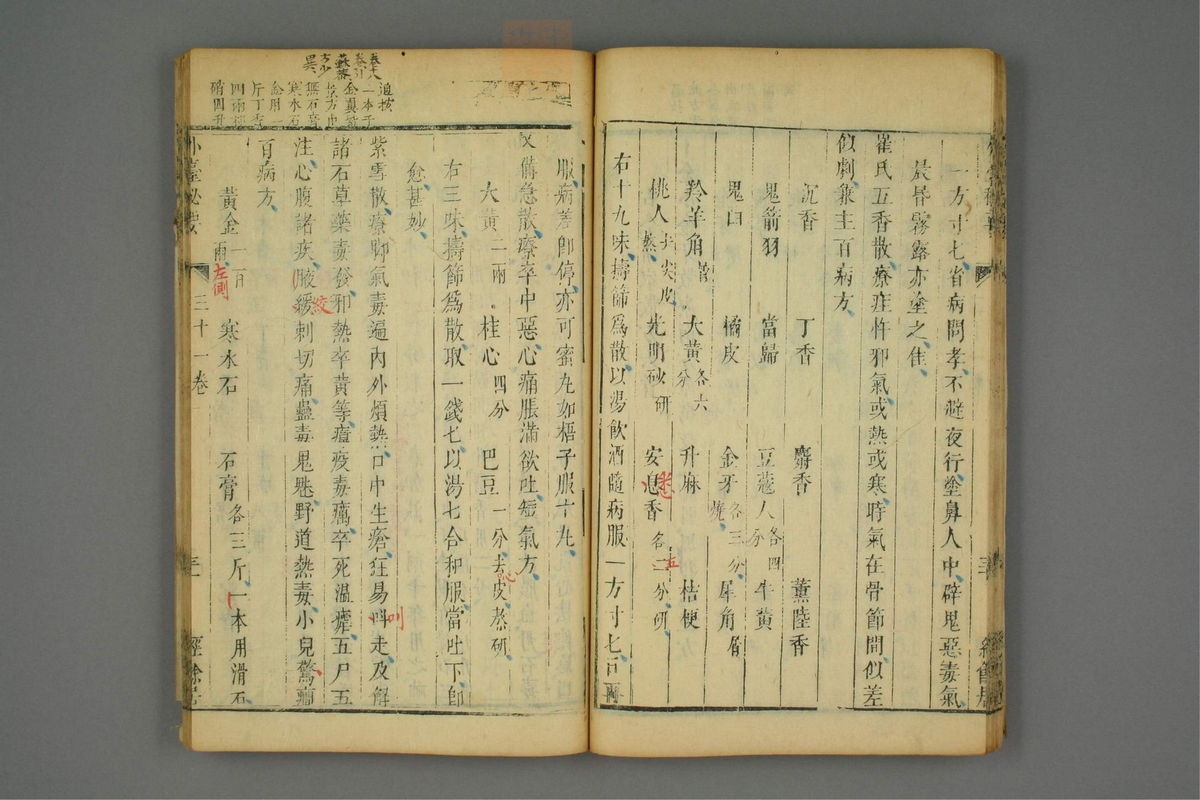 一方寸七省病問孝不避夜行塗鼻人中辟鬼惡毒氣
晨昏霧露亦塗之佳
崔氏五香散療疰忤邪氣或熱或寒時氣在骨節間似差
似劇兼主百病方
沉香 丁香 麝香 薰陸香
鬼箭羽 當歸 豆蔻人各四分 牛黃
鬼臼 橘皮 金牙燒各三分 犀角屑
羚羊角屑 大黃各六分 升麻 桔梗
桃人去尖皮熬 光明砂研 安息香各二分研
右十九味擣篩為散以湯飲酒隨病服一方寸七
服病差即停亦可蜜丸如梧子服十丸
又備急散療卒中惡心痛脹滿欲吐短氣方
大黃二兩 桂心四分 巴豆一分去皮熬研
右三味擣篩為散取一錢七以湯七合和服當吐下即
愈甚妙
紫雪散療腳氣毒遍內外煩熱口中生瘡狂易叫走及解
諸石草藥毒發邪熱卒黃等瘴疫毒癘卒死溫瘧五尸五
注心腹諸疾腋緩刺切痛蠱毒鬼魅野道熱毒小兒驚癇
百病方
黃金一百兩 寒水石 石膏各三斤一本用滑石
外臺秘要 三十一卷 三 經餘居
左側
絞
叫
五
心